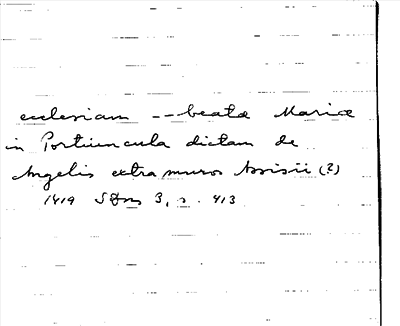 ecclesiam -- beatae Mariae
in Portiuncula dictam de
Angelis extra muros Assisii (?)
1419 SDm 3, s. 413